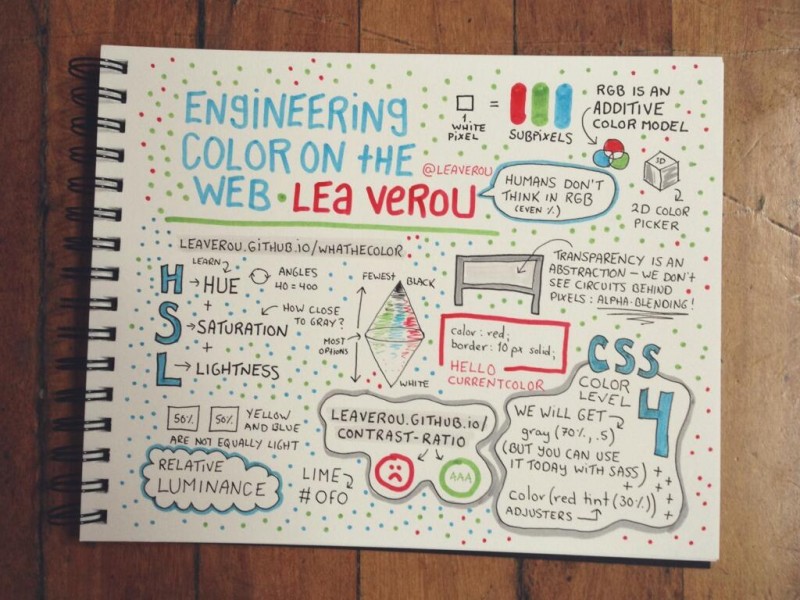 ENGINEERING
COLOR ON THE
WEB • LEA VEROU
@LEAVEROU
1.
WHITE
PIXEL
=
SUBPIXELS
RGB IS AN
ADDITIVE
COLOR MODEL
HUMANS DON'T
THINK IN RGB
(EVEN %)
3D
2D COLOR
PICKER
LEAVEROU.GITHUB.IO/WHATHECOLOR
LEARN
H → HUE
+
S → SATURATION
+
L → LIGHTNESS
ANGLES
40 = 400
HOW CLOSE
TO GRAY?
FEWEST
BLACK
MOST
OPTIONS
WHITE
TRANSPARENCY IS AN
ABSTRACTION – WE DON'T
SEE CIRCUITS BEHIND
PIXELS: ALPHA-BLENDING!
color: red;
border: 10 px solid;
HELLO
CURRENTCOLOR
50% 50% YELLOW
AND BLUE
ARE NOT EQUALLY LIGHT
RELATIVE
LUMINANCE
LIME
#0F0
LEAVEROU.GITHUB.IO/
CONTRAST-RATIO
AAA
CSS
COLOR
LEVEL 4
WE WILL GET
gray (70%, .5)
(BUT YOU CAN USE
IT TODAY WITH SASS)
color (red tint (30%))
ADJUSTERS